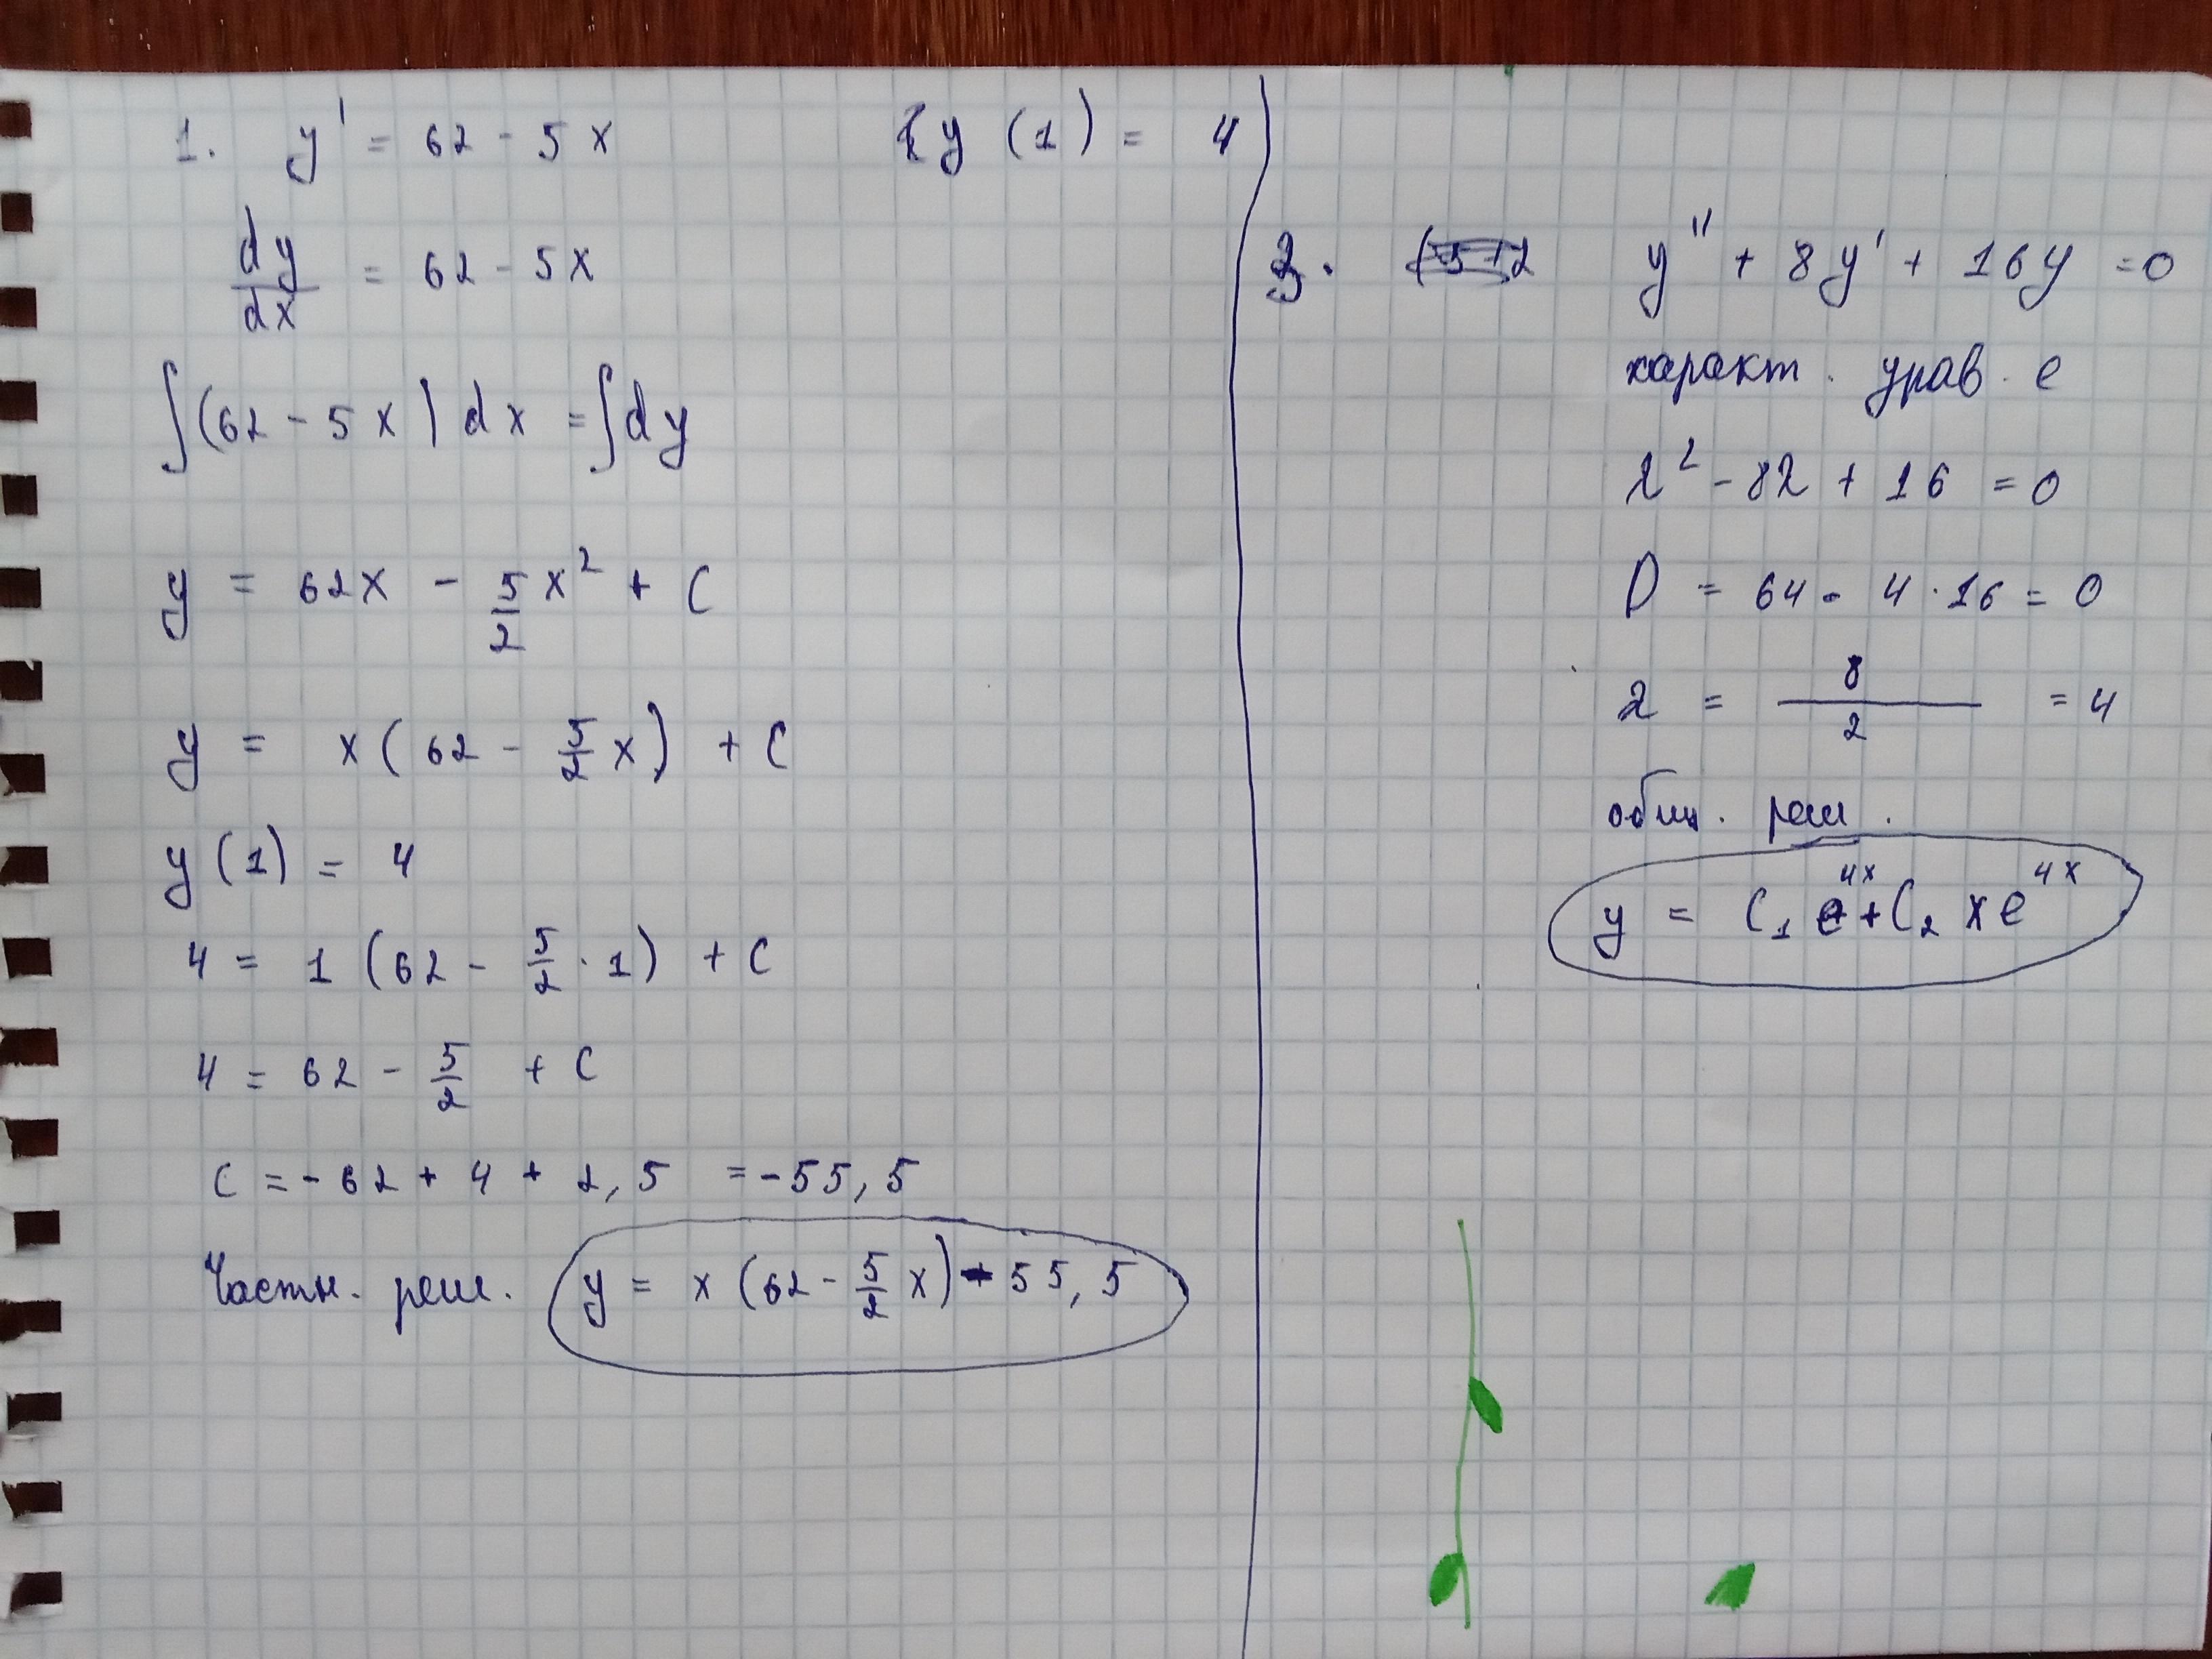 1. y' = 62 - 5x { y (1) = 4
dy/dx = 62 - 5x
∫(62 - 5x) dx = ∫dy
y = 62x - 5/2 x² + C
y = x(62 - 5/2 x) + C
y(1) = 4
4 = 1 (62 - 5/2 · 1) + C
4 = 62 - 5/2 + C
C = - 62 + 4 + 2,5 = -55,5
Частн. реш. y = x (62 - 5/2 x) - 55,5
3. y'' + 8y' + 16y = 0
характ. урав. е
λ² - 8λ + 16 = 0
D = 64 - 4 · 16 = 0
λ = 8/2 = 4
общ. реш.
y = C₁ e^4x + C₂ x e^4x